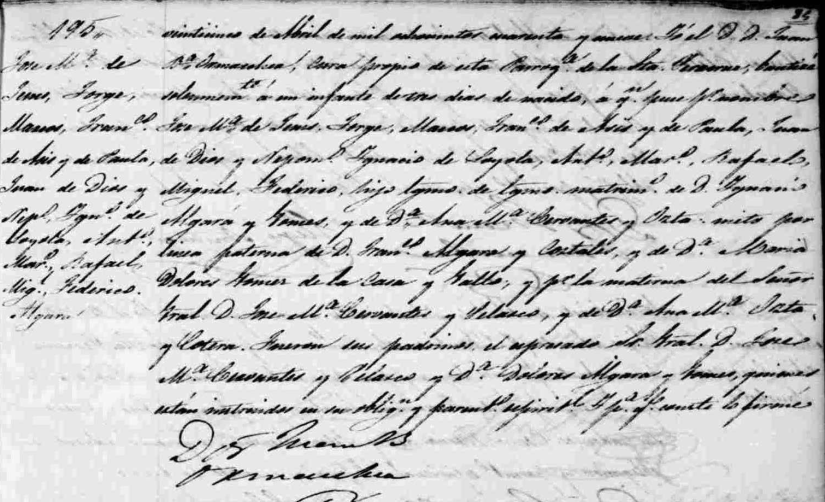 84
195.
Jose Mª. de
Jesus, Jorge,
Marcos, Franco.
de Asis y de Paula,
Juan de Dios y
Nepo. Igno. de
Loyola, Anto.,
Maro., Rafael,
Mig., Federico.
Algara
veinticinco de Abril de mil ochocientos cuarenta y nueve. Yó el D. D. Juan
Bª. Ormaechea, Cura propio de esta Parroqª. de la Sta. Veracruz, bauticé
solemnemte. á un infante de tres dias de nacido, á qn. puse pr. nombres
Jose Mª. de Jesus, Jorge, Marcos, Franco. de Asis y de Paula, Juan
de Dios y Nepomo. Ignacio de Loyola, Anto., Maro., Rafael,
Miguel, Federico, hijo lgmo. de lgmo. matrimo. de D. Ignacio
Algará y Gomes, y de Dª. Ana Mª. Cervantes y Ozta. nieto por
linea paterna de D. Franco. Algara y de Dª. Maria
Dolores Gomez de la Casa y, y pr. la materna del Señor
Gral. D. Jose Mª. Cervantes y Velasco, y de Dª. Ana Mª. Ozta
y Cotera. Fueron sus padrinos el espresado Sr. Gral. D. Jose
Mª. Cervantes y Velasco y Dª. Dolores Algara y Gomes, quienes
están instruidos en su oblign. y parento. espirito. Y pª. qe. conste lo firmé
Ormaechea